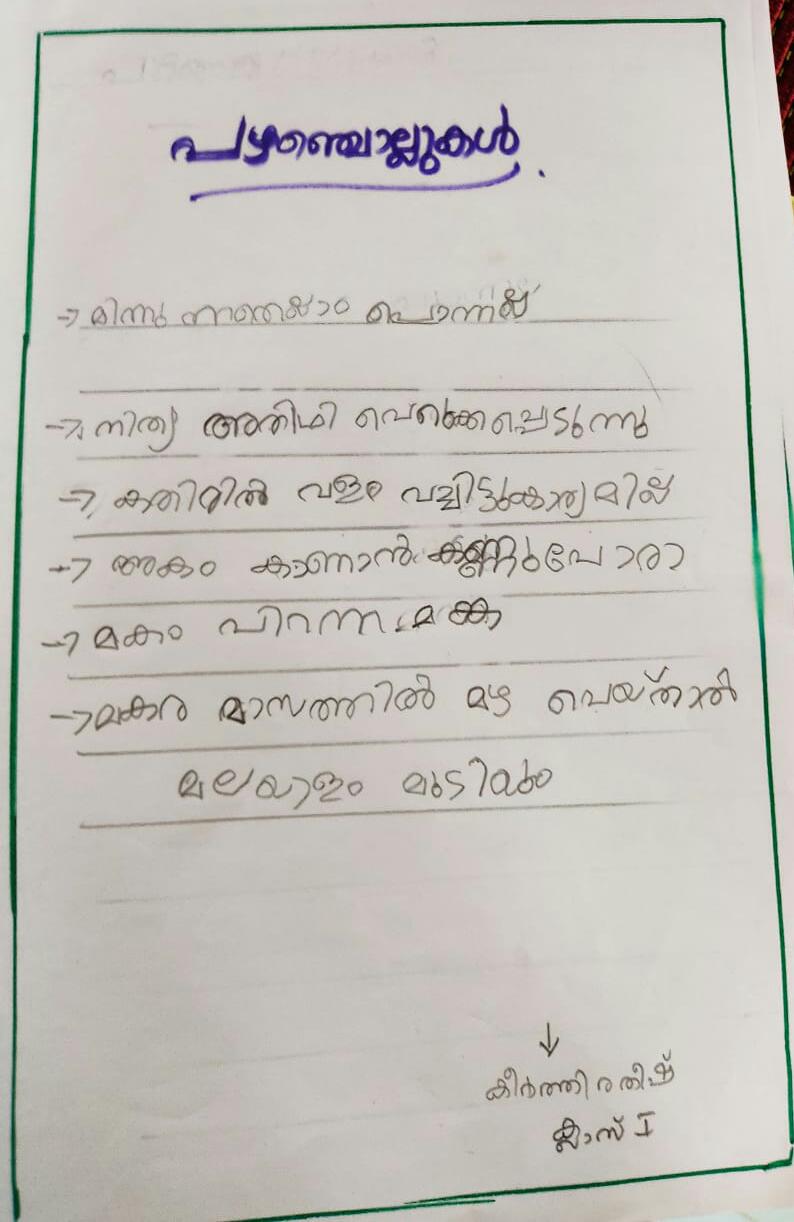 പഴഞ്ചൊല്ലുകൾ.
→ മിന്നു ന്നതെല്ലാം പൊന്നല്ല
→ നിത്യ അതിഥി വെറുക്കപ്പെടുന്നു
→ കതിരിൽ വളം വച്ചിട്ടുകാര്യമില്ല
→ അകം കാണാൻ കണ്ണുപോരാ
→ മകം പിറന്ന മങ്ക
→ മകര മാസത്തിൽ മഴ പെയ്താൽ
മലയാളം മുടിയും
↓
കീർത്തി രതീഷ്
ക്ലാസ് I